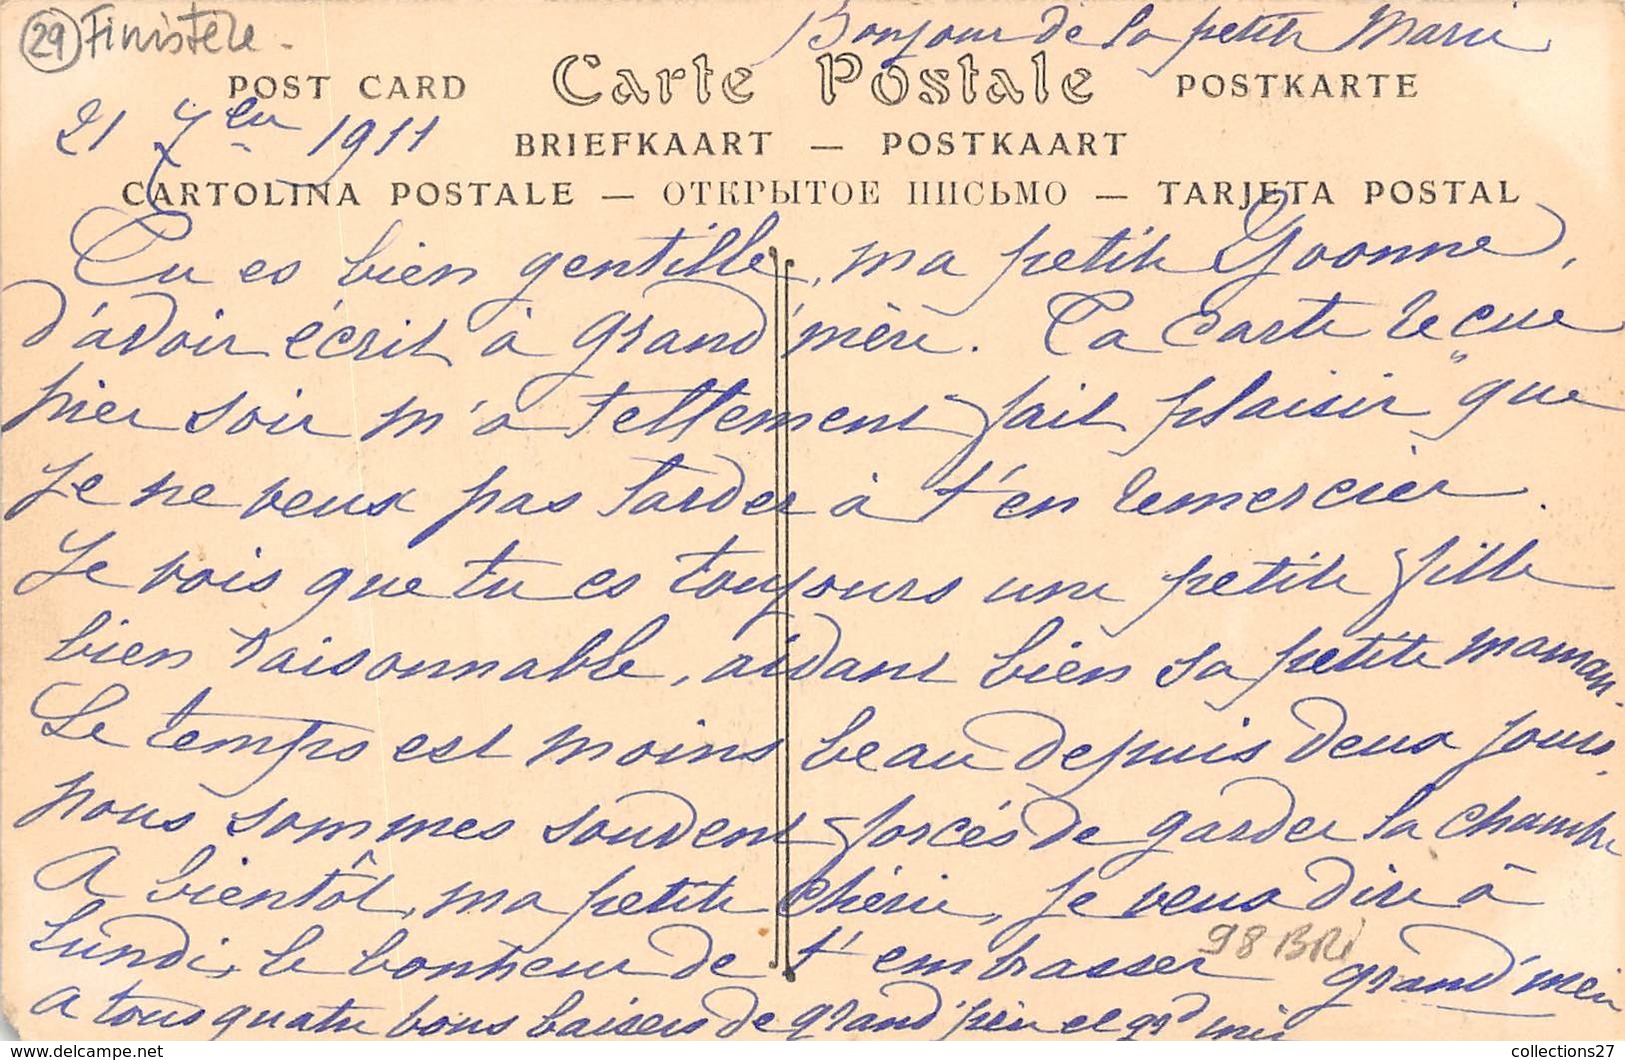 29 Finistère.
Bonjour de la petite Marie
POST CARD Carte Postale POSTKARTE
21 7bre 1911
BRIEFKAART — POSTKAART
CARTOLINA POSTALE — ОТКРЫТОЕ ПИСЬМО — TARJETA POSTAL
Tu es bien gentille, ma petite Yvonne,
d'avoir écrit à grand'mère. Ta carte reçue
hier soir m'a tellement fait plaisir que
je ne veux pas tarder à t'en remercier.
Je vois que tu es toujours une petite fille
bien raisonnable, aidant bien sa petite maman.
Le temps est moins beau depuis deux jours,
nous sommes souvent forcés de garder la chambre
A bientôt, ma petite chérie, je veux dire à
lundi, le bonheur de t'embrasser grand'mère
98 BRI
A tous quatre bons baisers de grand'père et gd mère
collections27